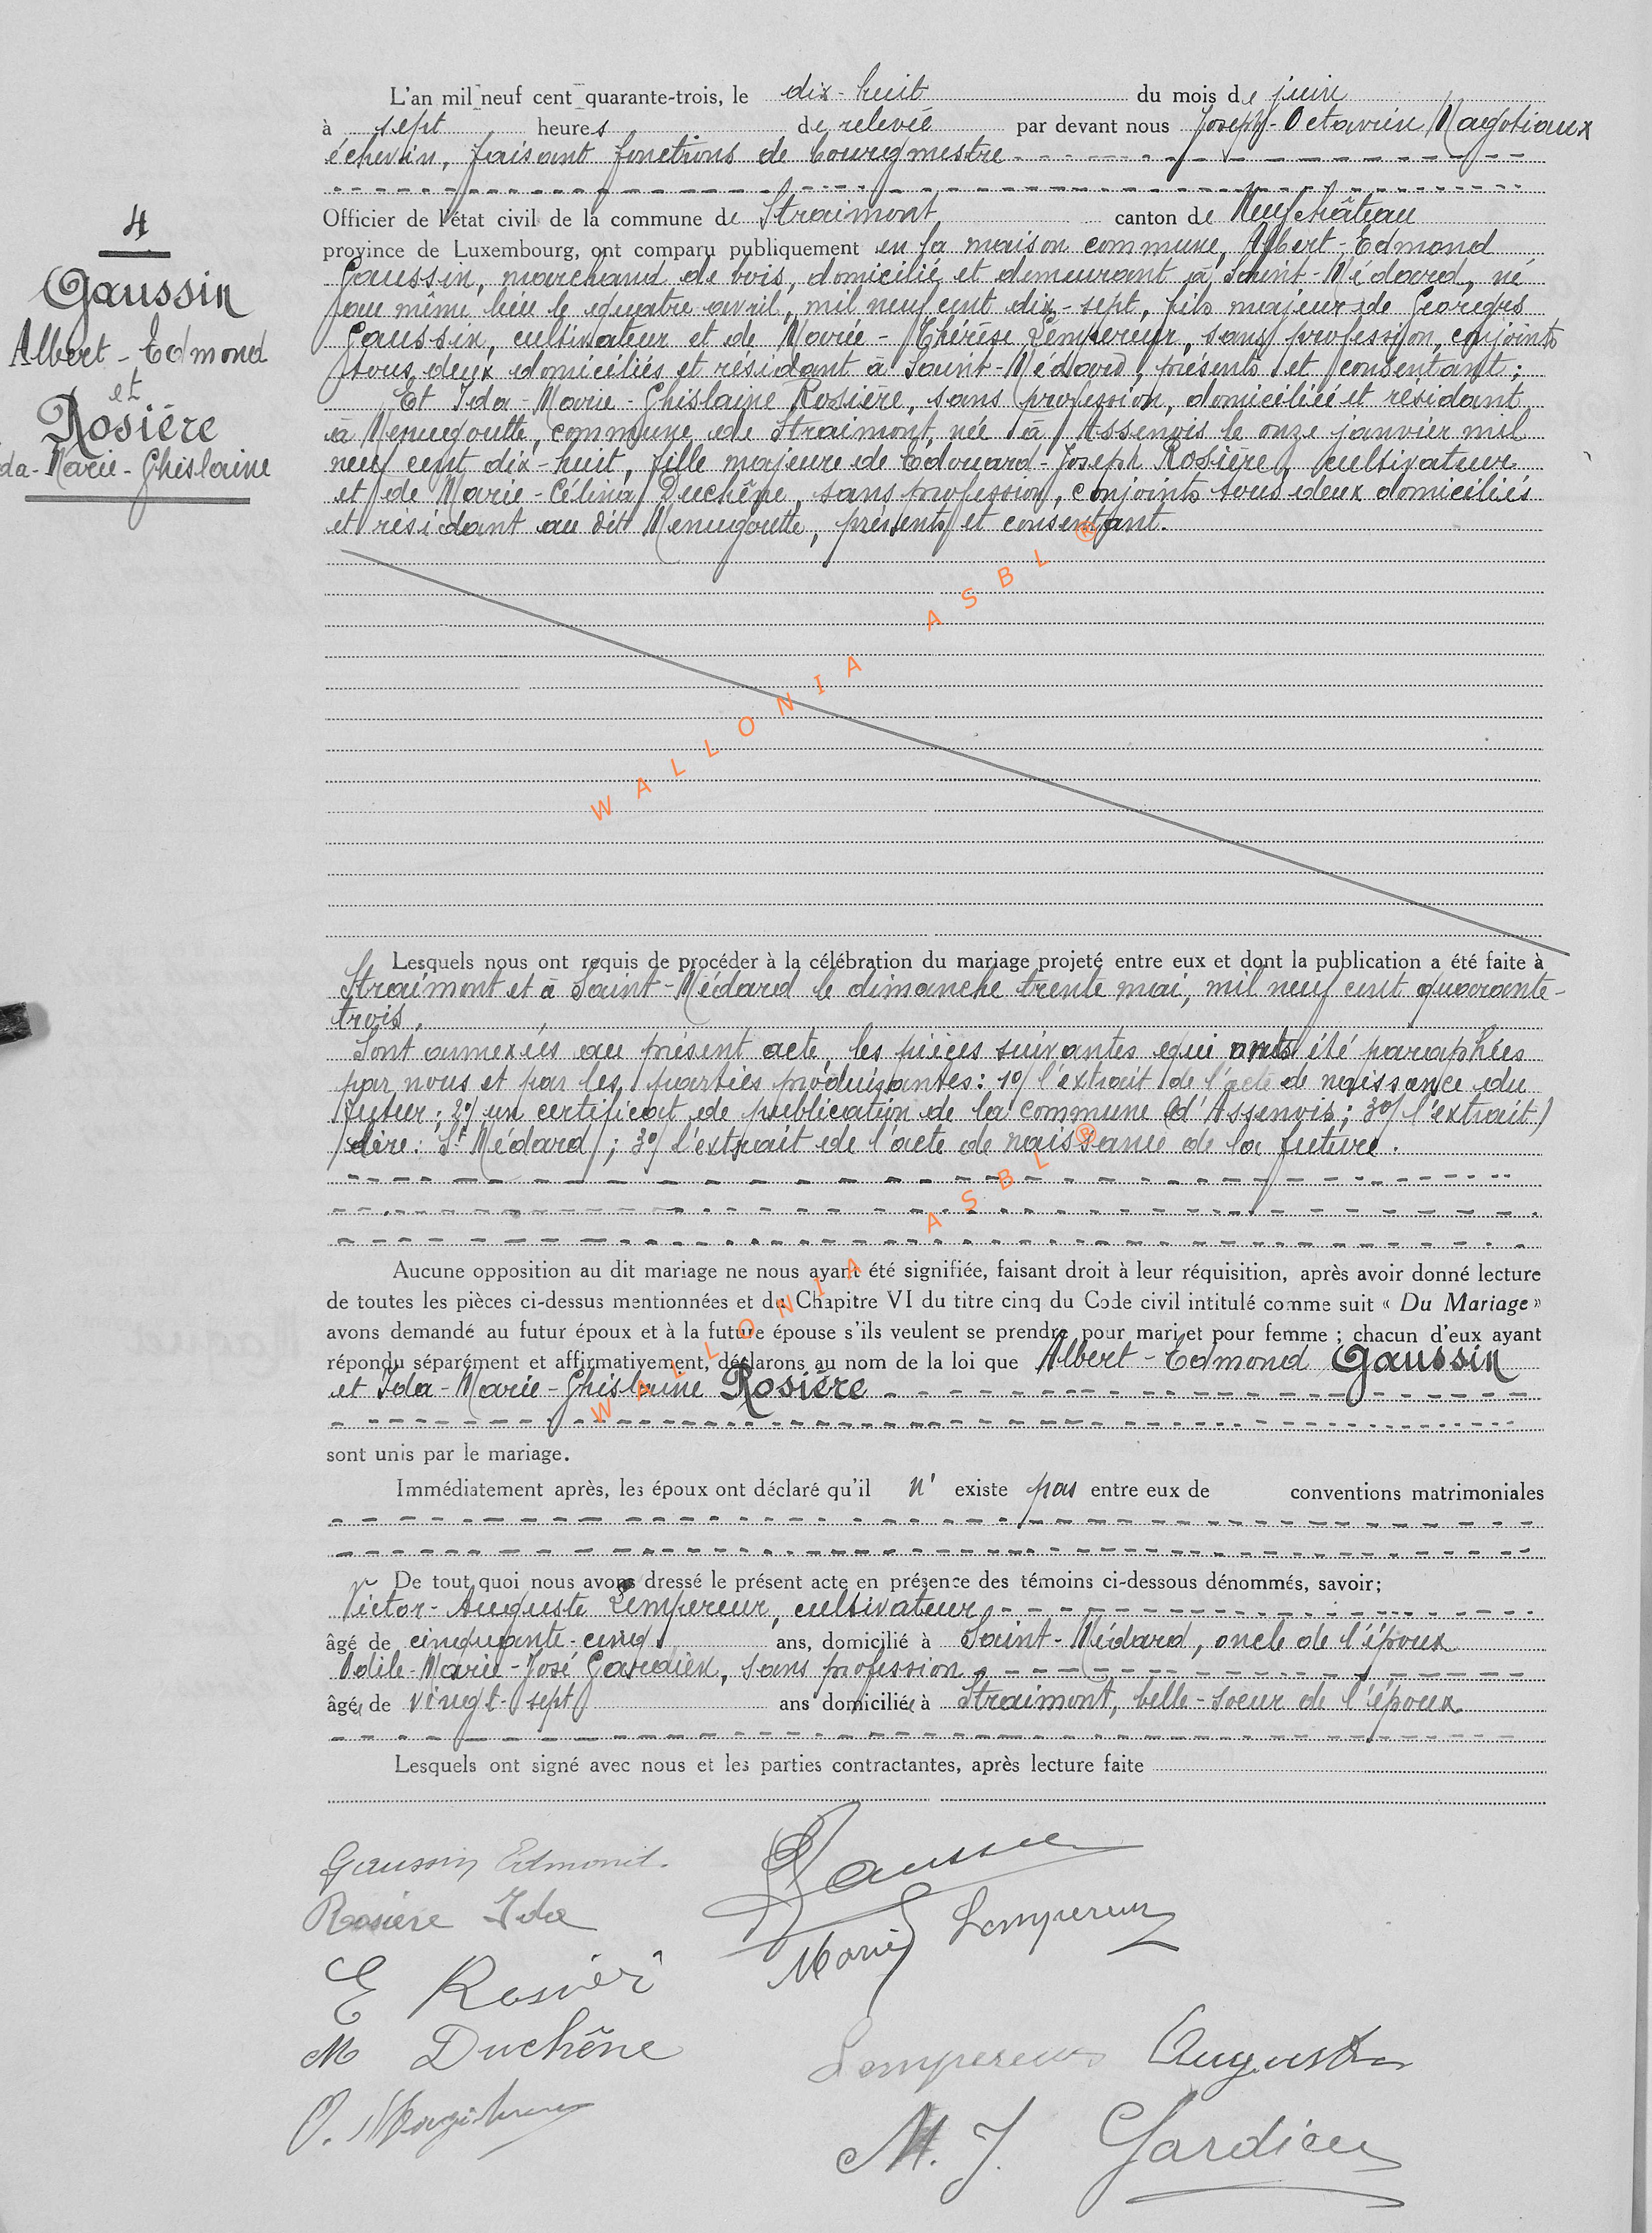 L'an mil neuf cent quarante-trois, le dix-huit du mois de juin
à sept heures de relevée par devant nous Joseph-Octavin Magotiaux
échevin, faisant fonctions de bourgmestre
Officier de l'état civil de la commune de Straimont, canton de Neufchâteau
province de Luxembourg, ont comparu publiquement en la maison commune, Albert-Edmond
Gaussin, marchand de bois, domicilié et demeurant à Saint-Médard, né
au même lieu le quatre avril, mil neuf cent dix-sept, fils majeur de Georges
Gaussin, cultivateur et de Marie-Thérèse Lempereur, sans profession, conjoints
tous deux domiciliés et résidant à Saint-Médard, présents et consentant;
Et Ida-Marie-Ghislaine Rosière, sans profession, domiciliée et résidant
à Menugoutte, commune de Straimont, née à Assenois le onze janvier mil
neuf cent dix-huit, fille majeure de Edouard-Joseph Rosière, cultivateur
et de Marie-Célina Duchêne, sans profession, conjoints tous deux domiciliés
et résidant au dit Menugoutte, présents et consentant.
4
Gaussin
Albert-Edmond
et
Rosière
da-Marie-Ghislaine
WALLONIA ASBL ®
Lesquels nous ont requis de procéder à la célébration du mariage projeté entre eux et dont la publication a été faite à
Straimont et à Saint-Médard le dimanche trente mai, mil neuf cent quarante-
trois.
Sont annexées au présent acte, les pièces suivantes qui ont été paraphées
par nous et par les parties produisantes: 1o/ l'extrait de l'acte de naissance du
futur; 2o/ un certificat de publication de la commune (d'Assenois; 3o/ l'extrait)
/dire: St Médard/; 3o/ l'extrait de l'acte de naissance de la future.
WALLONIA ASBL ®
Aucune opposition au dit mariage ne nous ayant été signifiée, faisant droit à leur réquisition, après avoir donné lecture
de toutes les pièces ci-dessus mentionnées et du Chapitre VI du titre cinq du Code civil intitulé comme suit « Du Mariage »
avons demandé au futur époux et à la future épouse s'ils veulent se prendre pour mari et pour femme ; chacun d'eux ayant
répondu séparément et affirmativement, déclarons au nom de la loi que Albert-Edmond Gaussin
et Ida-Marie-Ghislaine Rosière
sont unis par le mariage.
Immédiatement après, les époux ont déclaré qu'il n' existe pas entre eux de conventions matrimoniales
De tout quoi nous avons dressé le présent acte en présence des témoins ci-dessous dénommés, savoir;
Victor-Auguste Lempereur, cultivateur
âgé de cinquante-cinq ans, domicilié à Saint-Médard, oncle de l'époux
Odile-Marie-José Gardien, sans profession
âgée de vingt-sept ans domiciliée à Straimont, belle-soeur de l'époux.
Lesquels ont signé avec nous et les parties contractantes, après lecture faite
Gaussin Edmond.
Gaussin
Rosière Ida
Marie Lempereur
E Rosière
M Duchêne
Lempereur Auguste
O. Magotiaux
M. J. Gardien